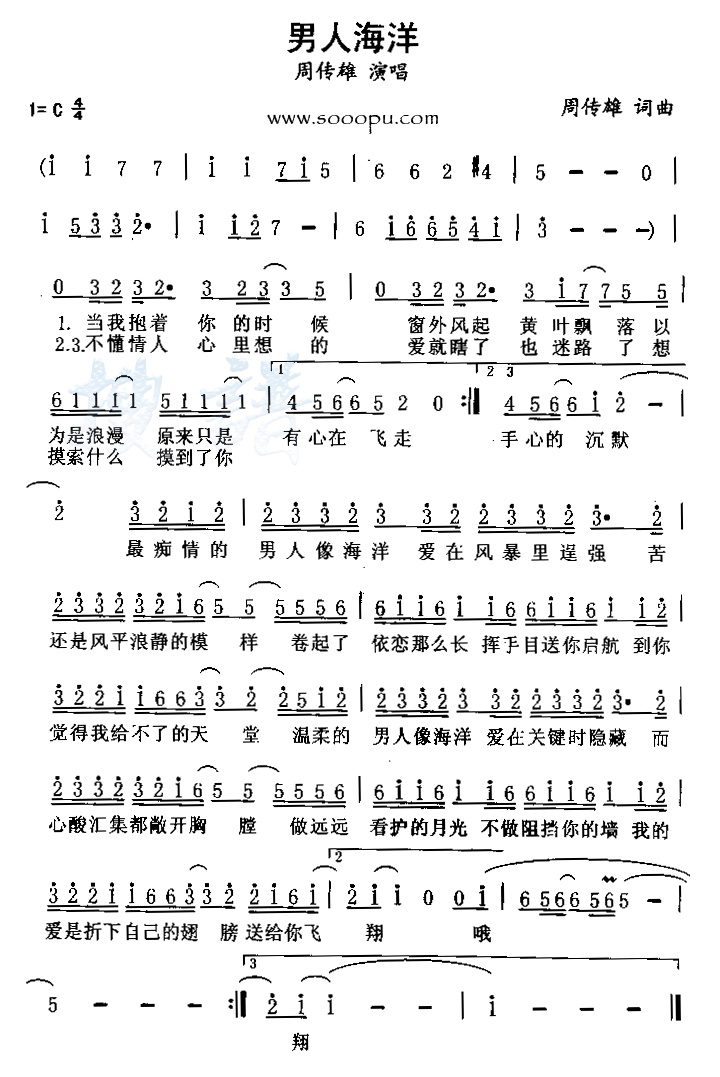 男人海洋
周传雄 演唱
1= C 4/4
www.sooopu.com
周传雄 词曲
(i i 7 7 | i i 7 i 5 | 6 6 2 #4 | 5 - - 0 |
i 5 3 3 2• | i i 2 7 - | 6 i 6 6 5 4 i | 3 - - -) |
0 3 2 3 2• 3 2 3 3 5 | 0 3 2 3 2• 3 i 7 7 5 5
1. 当我抱着 你的时候 窗外风起 黄叶飘落以
2.3.不懂情人 心里想的 爱就瞎了 也迷路了想
1 2 3
6 1 1 1 1 1 5 1 1 1 1 1 | 4 5 6 6 5 2 0 :| 4 5 6 6 i 2 - |
为是浪漫 原来只是 有心在飞走 手心的沉默
摸索什么 摸到了你
2 3 2 i 2 | 2 3 3 2 3 2 3 2 3 2 3• 2 |
最痴情的 男人像海洋 爱在风暴里逞强 苦
2 3 3 2 3 2 i 6 5 5 5 5 5 6 | 6 i i 6 i i 6 6 i i 6 i i 2 |
还是风平浪静的模样 卷起了 依恋那么长 挥手目送你启航 到你
3 2 2 i i 6 6 3 3 2 2 5 i 2 | 2 3 2 3 2 3 2 3 2 3 2 3• 2 |
觉得我给不了的天堂 温柔的 男人像海洋 爱在关键时隐藏 而
2 3 3 2 3 2 i 6 5 5 5 5 5 6 | 6 i i 6 i i 6 i i 6 i i 2 |
心酸汇集都敞开胸膛 做远远 看护的月光 不做阻挡你的墙 我的
2
3 2 2 i i 6 6 3 3 2 2 i 6 i | 2 i i 0 0 i | 6 5 6 6 5 6 5 - |
爱是折下自己的翅膀 送给你飞 翔 哦
3
5 - - - :| 2 i i - - | i - - - |
翔